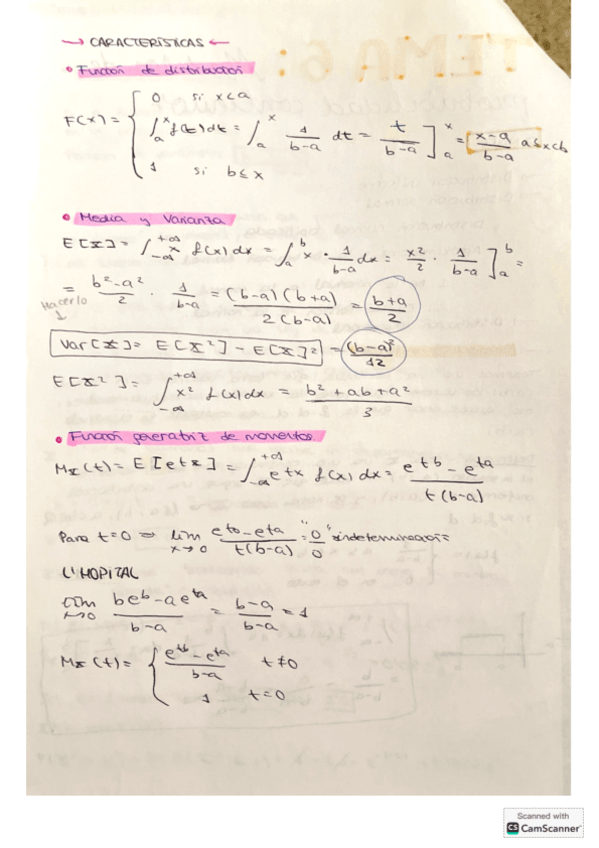 → CARACTERÍSTICAS ←
• Función de distribución
F(x) = { 0 si x<a
∫ₐˣ f(t)dt = ∫ₐˣ 1/(b-a) dt = t/(b-a) ]ₐˣ = (x-a)/(b-a) a≤x<b
1 si b≤x
• Media y Varianza
E[X] = ∫₋∞⁺∞ x f(x)dx = ∫ₐᵇ x · 1/(b-a) dx = x²/2 · 1/(b-a) ]ₐᵇ =
= (b²-a²)/2 · 1/(b-a) = (b-a)(b+a)/2(b-a) = (b+a)/2
Hacerlo
Var[X] = E[X²] - E[X]² = (b-a)²/12
E[X²] = ∫₋∞⁺∞ x² f(x)dx = (b²+ab+a²)/3
• Función generatriz de momentos
Mx(t) = E[etx] = ∫₋∞⁺∞ etx f(x)dx = (etb - eta)/t(b-a)
Para t=0 ⇒ lim x→0 (etb - eta)/t(b-a) = "0/0" indeterminación
L'HOPITAL
lim t→0 (beb - aeta)/(b-a) = (b-a)/(b-a) = 1
Mx(t) = { (etb - eta)/(b-a) t≠0
1 t=0
Scanned with
CS CamScanner